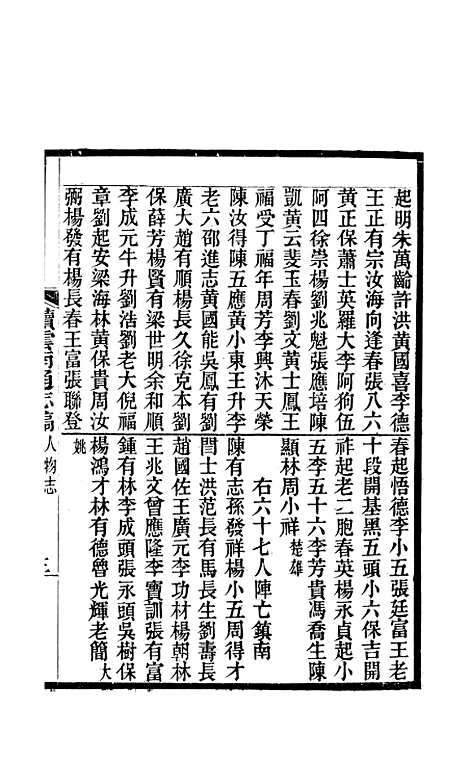 起明朱萬齡許洪黃國喜李德
王正有宗汝海向逢春張八六
黃正保蕭士英羅大李阿狗伍
阿四徐崇楊劉兆魁張應培陳
凱黃云斐玉春劉文黃士鳳王
福受丁福年周芳李興沐天榮
陳汝得陳五應黃小東王升李
老六邵進志黃國能吳鳳有劉
廣大趙有順楊長久徐克本劉
保薛芳楊賢有梁世明余和順
李成元牛升劉浩劉老大倪福
章劉起安梁海林黃保貴周汝
弼楊發有楊長春王富張聯登
春起悟德李小五張廷富王老
十段開基黑五頭小六保吉開
祥起老二胞春英楊永貞起小
五李五十六李芳貴馮喬生陳
顯林周小祥 楚雄
右六十七人陣亡鎮南
陳有志孫發祥楊小五周得才
閆士洪范長有馬長生劉壽長
趙國佐王廣元李功材楊朝林
王兆文曾應隆李寶訓張有富
鍾有林李成頭張永頭吳樹保
楊鴻才林有德曾光輝老簡大
姚
續雲南通志稿 人物志 三